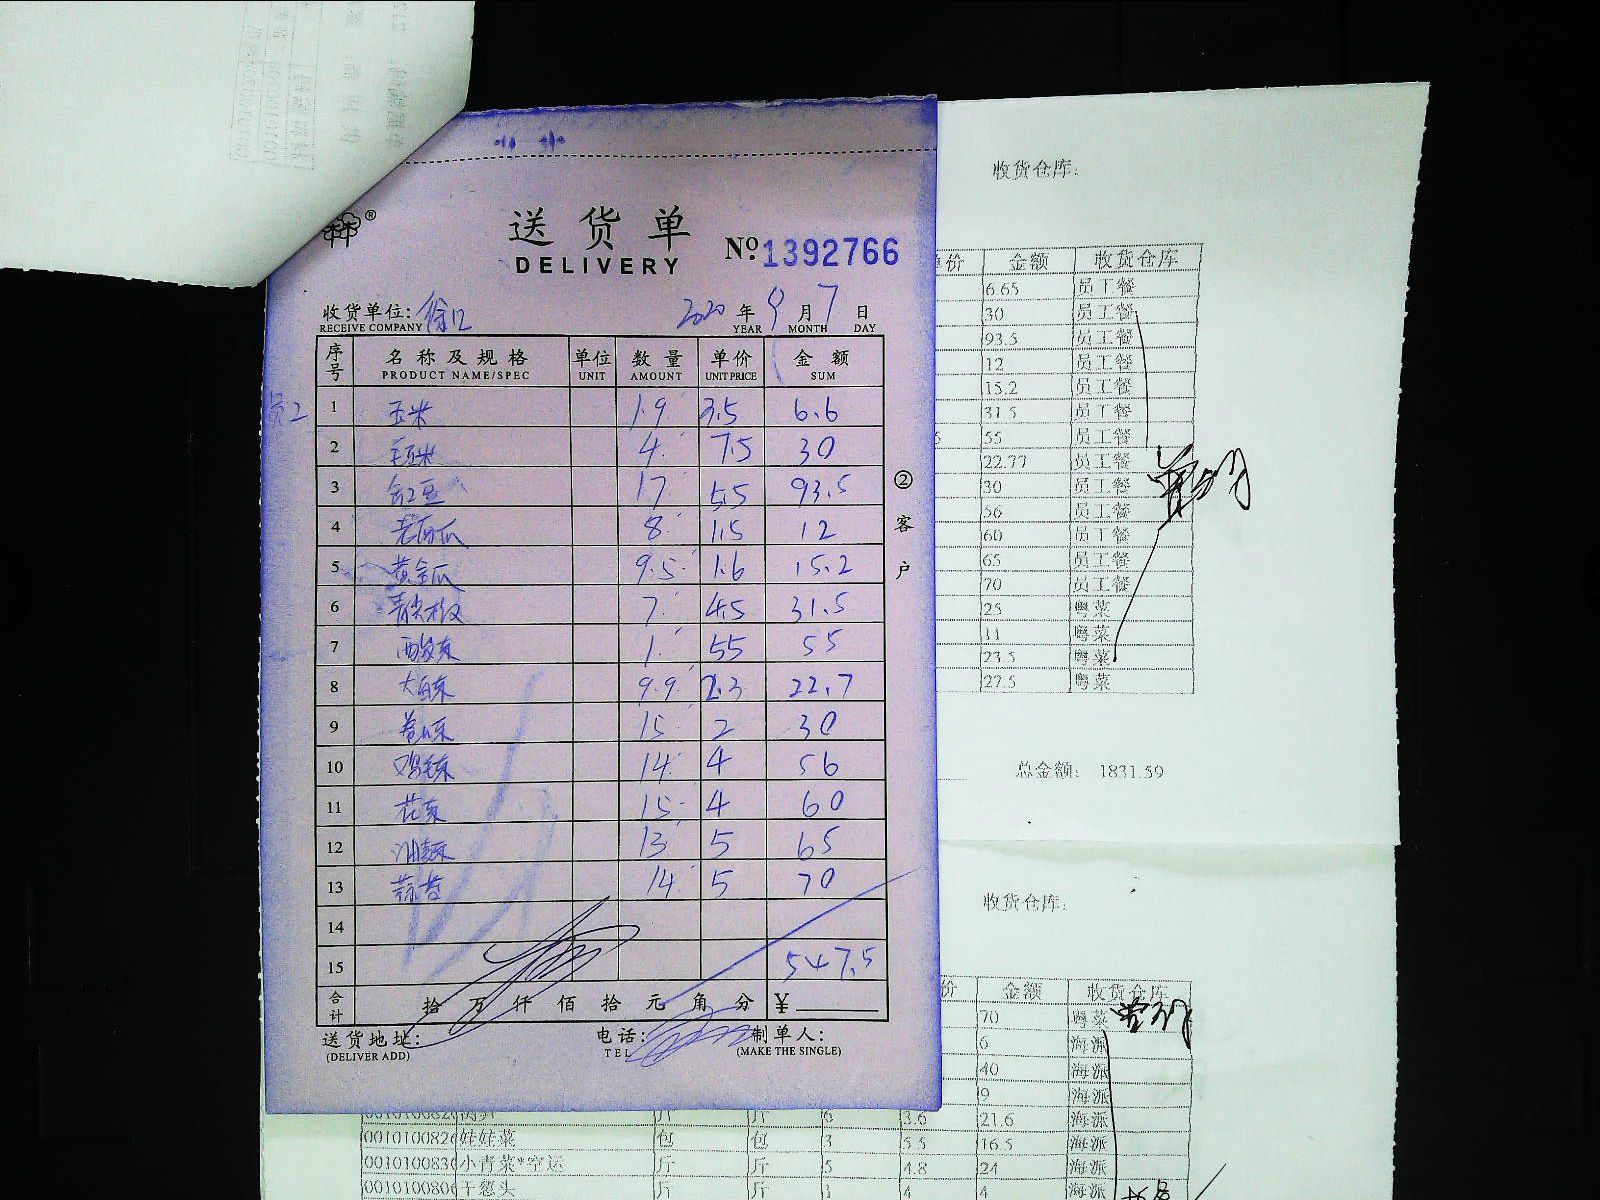 收货仓库:
送货单
DELIVERY
№ 1392766
收货单位: 徐汇
RECEIVE COMPANY
2020 年 9 月 7 日
YEAR MONTH DAY
序号 名称及规格 单位 数量 单价 金额
PRODUCT NAME/SPEC UNIT AMOUNT UNIT PRICE SUM
1 玉米 1.9 3.5 6.6
2 毛豆米 4 7.5 30
3 豇豆 17 5.5 93.5
4 老南瓜 8 1.5 12
5 黄金瓜 9.5 1.6 15.2
6 青尖椒 7 4.5 31.5
7 1 55 55
8 大白菜 9.9 2.3 22.7
9 卷心菜 15 2 30
10 鸡毛菜 14 4 56
11 花菜 15 4 60
12 13 5 65
13 14 5 70
14
15 547.5
合计 拾 万 仟 佰 拾 元 角 分 ¥
送货地址: 电话: 制单人:
(DELIVER ADD) TEL (MAKE THE SINGLE)
②客户
价 金额 收货仓库
6.65 员工餐
30 员工餐
93.5 员工餐
12 员工餐
15.2 员工餐
31.5 员工餐
55 员工餐
22.77 员工餐
30 员工餐
56 员工餐
60 员工餐
65 员工餐
70 员工餐
25 粤菜
11 粤菜
23.5 粤菜
27.5 粤菜
总金额: 1831.59
收货仓库:
价 金额 收货仓库
70 粤菜
6 海派
40 海派
9 海派
斤 斤 6 3.6 21.6 海派
001010082 娃娃菜 包 包 3 5.5 16.5 海派
001010083 小青菜*空运 斤 斤 5 4.8 24 海派
001010080 干葱头 斤 斤 1 4 4 海派